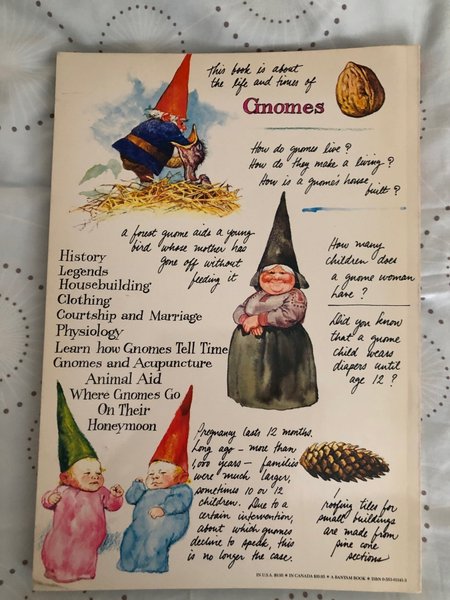 This book is about
the life and times of
Gnomes
How do gnomes live?
How do they make a living?
How is a gnome's house
built?
a forest gnome aids a young
bird whose mother has
gone off without
feeding it
How many
children does
a gnome woman
have?
History
Legends
Housebuilding
Clothing
Courtship and Marriage
Physiology
Learn how Gnomes Tell Time
Gnomes and Acupuncture
Animal Aid
Where Gnomes Go
On Their
Honeymoon
Did you know
that a gnome
child wears
diapers until
age 12?
Pregnancy lasts 12 months.
Long ago – more than
1,000 years – families
were much larger,
sometimes 10 or 12
children. Due to a
certain intervention,
about which gnomes
decline to speak, this
is no longer the case.
roofing tiles for
small buildings
are made from
pine cone
sections
IN U.S.A. $9.95 • IN CANADA $10.95 • A BANTAM BOOK • ISBN 0-553-01141-3